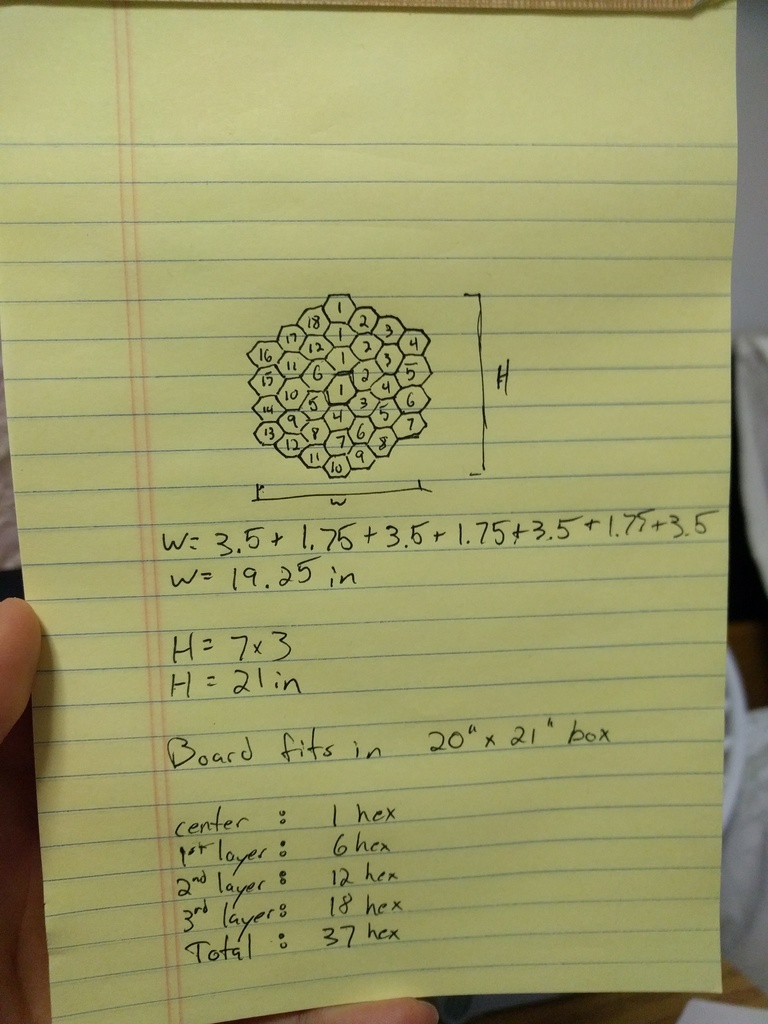 1
18 2
17 1 3
16 12 2 4
11 1 3
15 6 2 5
10 1 4
14 5 3 6
9 4 5
13 8 6 7
12 7 8
11 9
10
H
W
W= 3.5 + 1.75 + 3.5 + 1.75 + 3.5 + 1.75 + 3.5
W= 19.25 in
H = 7 x 3
H = 21 in
Board fits in 20" x 21" box
center : 1 hex
1st layer : 6 hex
2nd layer : 12 hex
3rd layer : 18 hex
Total : 37 hex